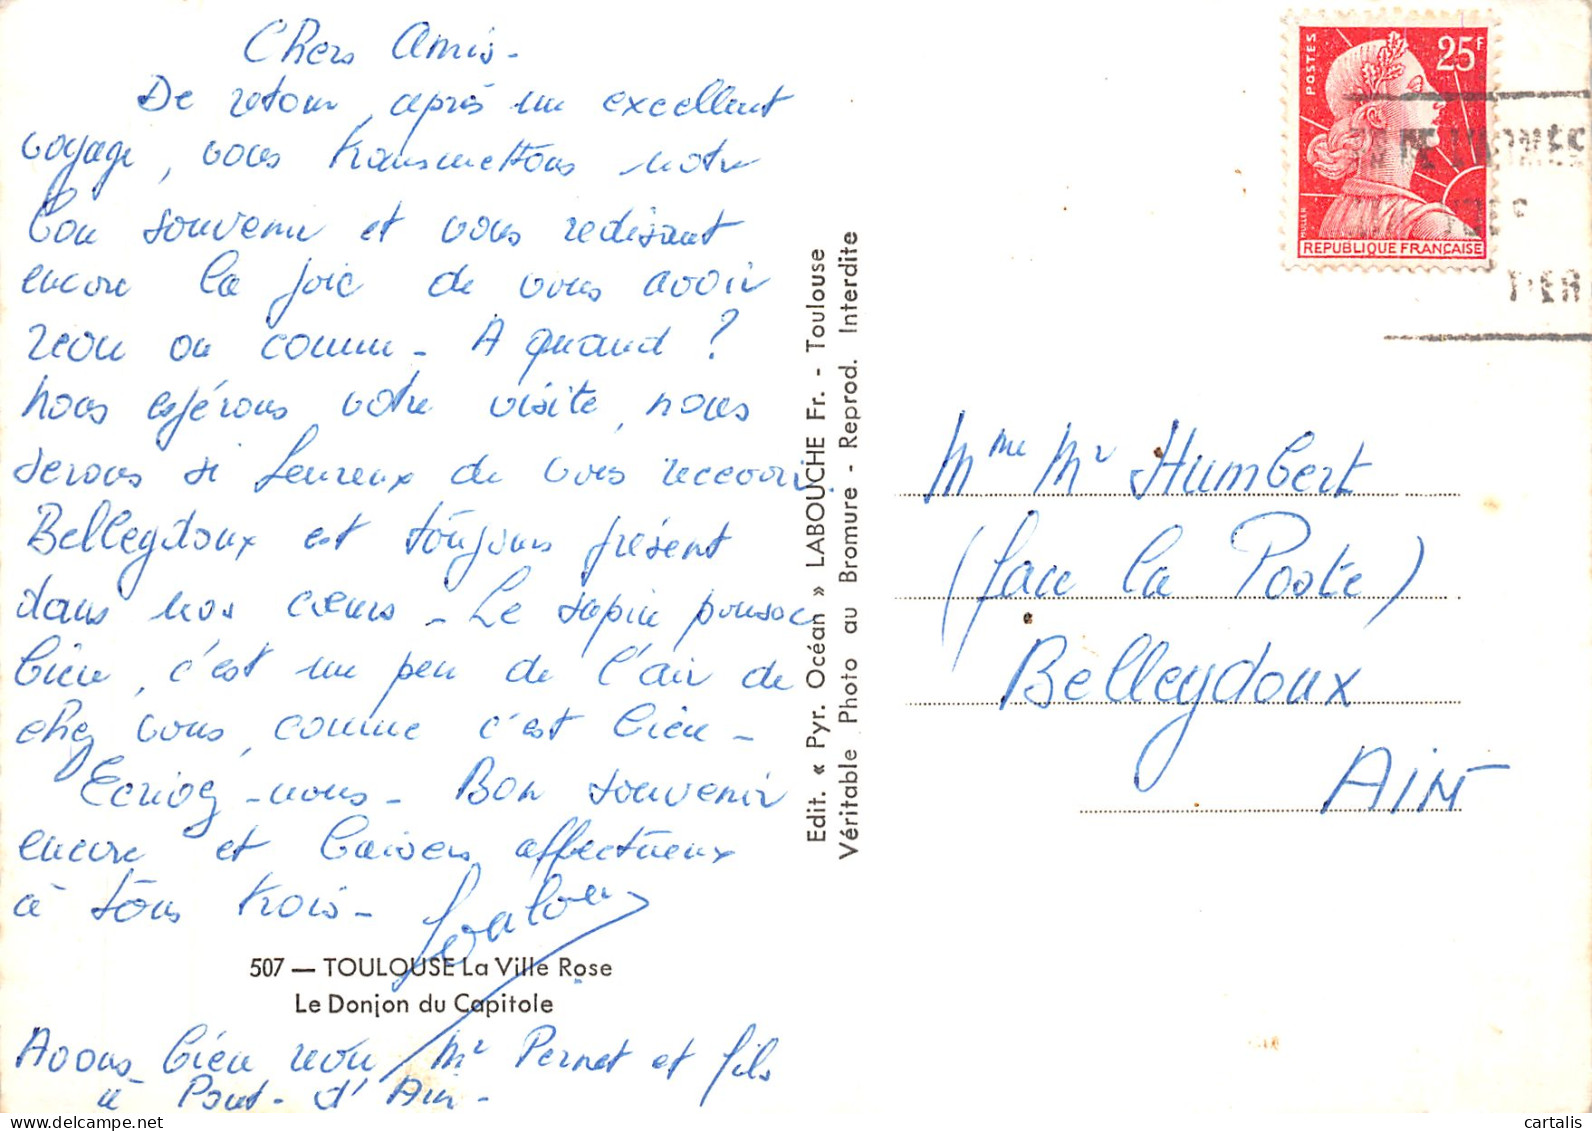 Chers Amis -
De retour, après un excellent
voyage, vous transmettons notre
bon souvenir et vous redisant
encore la joie de vous avoir
revu ou connu - A quand ?
Nous espérons votre visite, nous
serons si heureux de vous recevoir.
Belleydoux est toujours présent
dans nos cœurs - Le sapin pousse
bien, c'est un peu de l'air de
chez vous, comme c'est bien -
Ecrivez-nous - Bon souvenir
encore et baisers affectueux
à tous trois -
507 — TOULOUSE La Ville Rose
Le Donjon du Capitole
Avons bien revu Mr Pernet et fils
à Pont-d'Ain -
Edit. « Pyr. Océan » LABOUCHE Fr. - Toulouse
Véritable Photo au Bromure - Reprod. Interdite
POSTES
25F
MULLER
REPUBLIQUE FRANÇAISE
Mme Mr Humbert
(face la Poste)
Belleydoux
AIN
cartalis